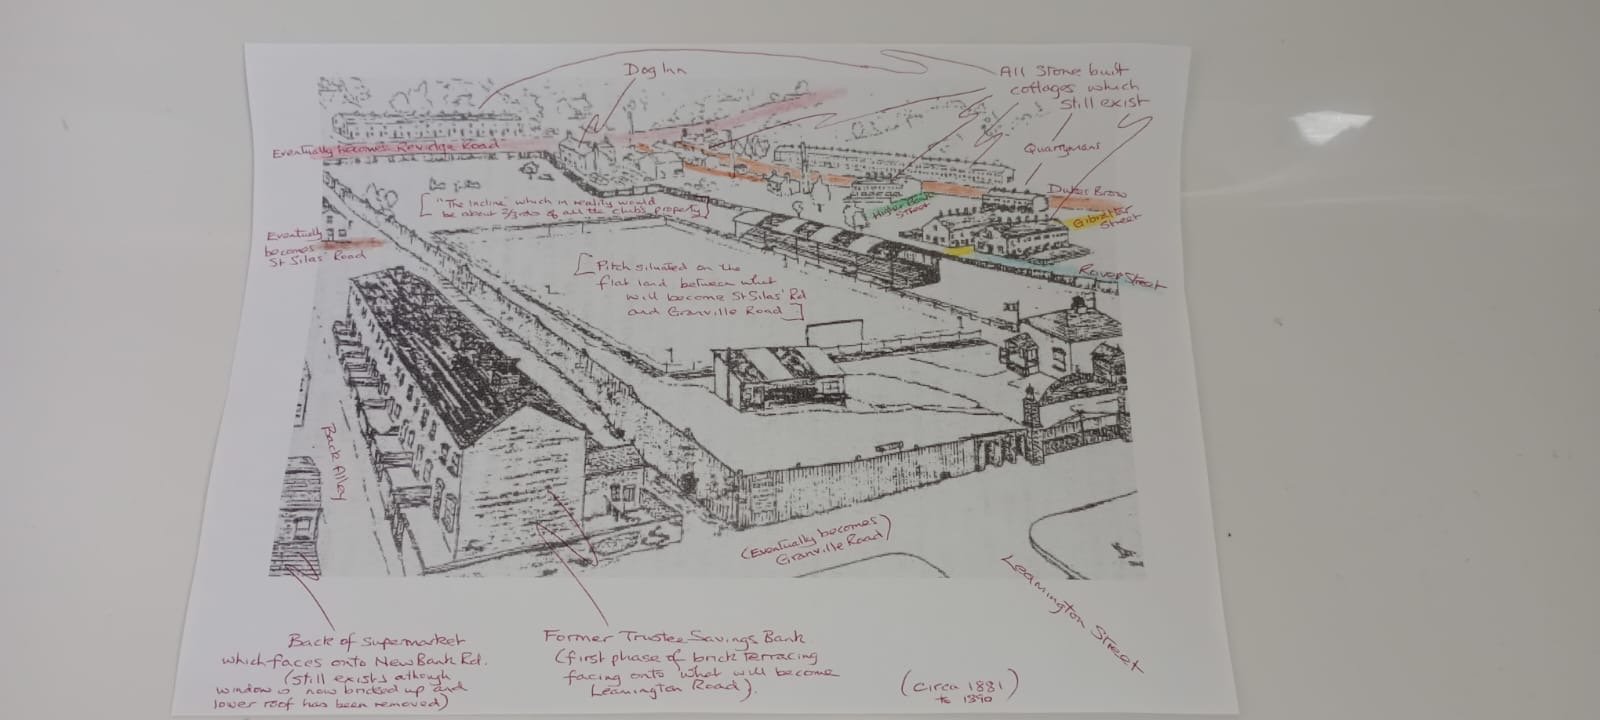 Dog Inn
All stone built
cottages which
still exist
Eventually becomes Revidge Road
Quarrymans
Dukes Brow
["The Incline" which in reality would
be about 2/3rds of all the clubs property]
Higher Bank
Street
Gibraltar
Street
Eventually
becomes
St Silas' Road
[Pitch situated on the
flat land between what
will become St Silas' Rd
and Granville Road]
Raven Street
Back Alley
(Eventually becomes
Granville Road)
Leamington Street
Back of Supermarket
which faces onto New Bank Rd.
(still exists athough
window is now bricked up and
lower roof has been removed)
Former Trustee Savings Bank
(first phase of brick terracing
facing onto what will become
Leamington Road).
(Circa 1881
to 1890)